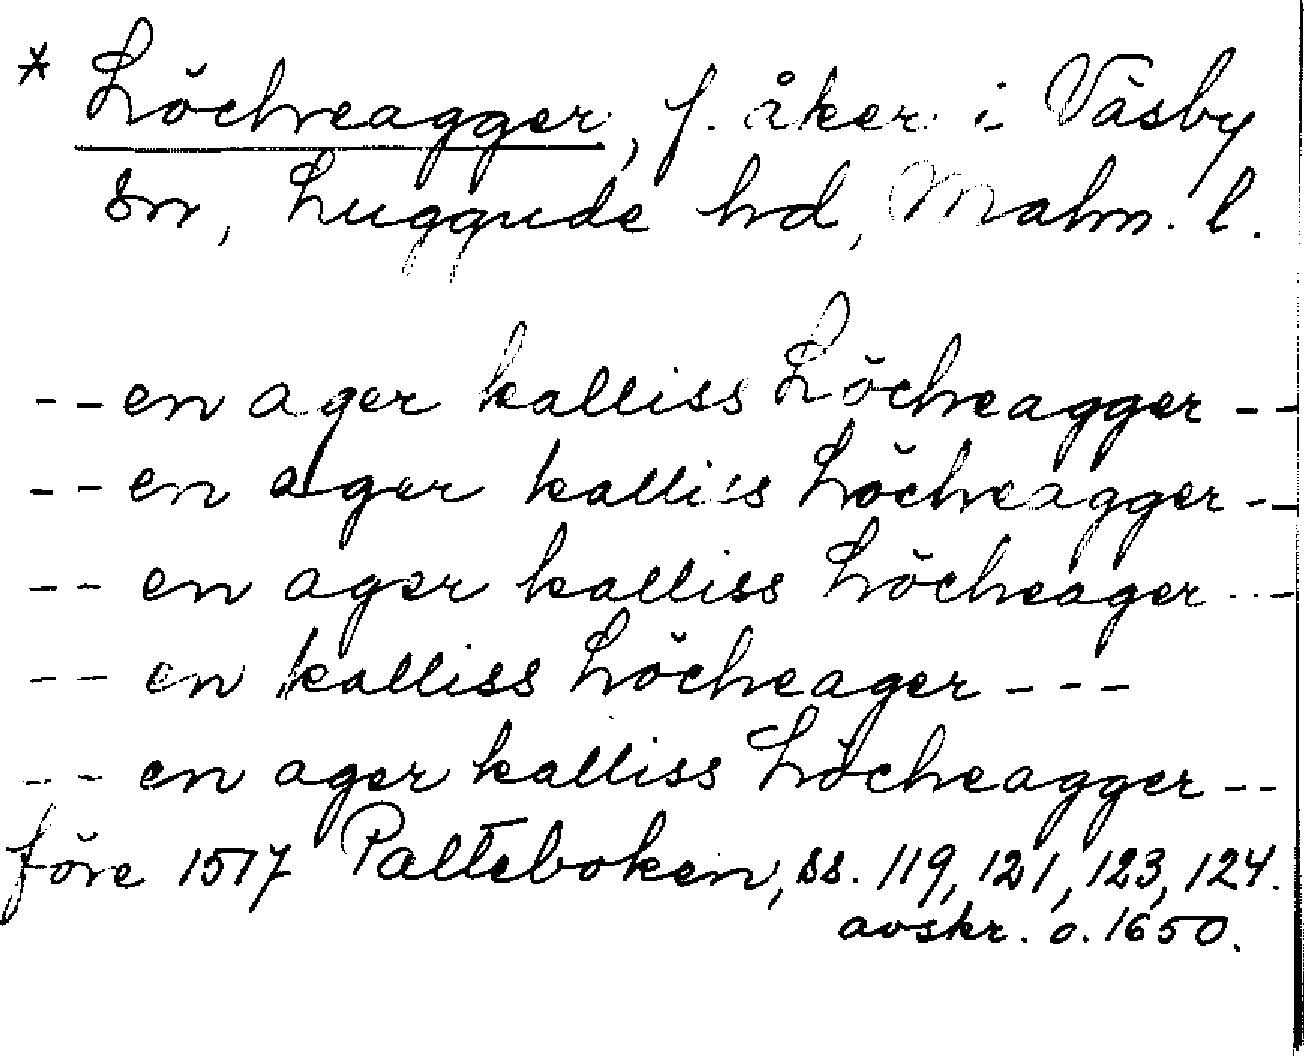 * Löcheagger, f. åker i Väsby
sn, Luggude hd, Malm. l.
-- en ager kalliss Löcheagger --
-- en ager kalliss Löcheagger --
-- en ager kalliss Löcheager ---
-- en kalliss Löcheager ---
-- en ager kalliss Löcheagger --
före 1517 Palteboken, ss. 119, 121, 123, 124.
avskr. o. 1650.